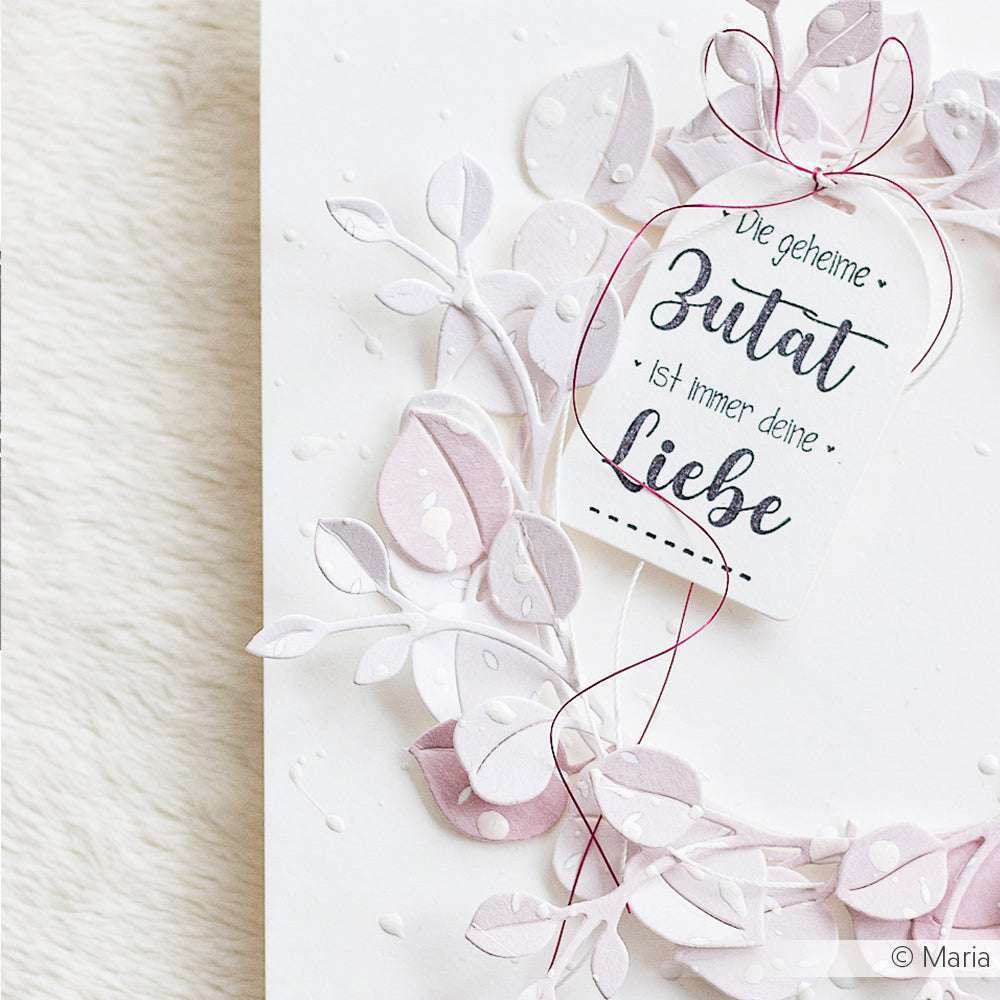 Die geheime
Zutat
ist immer deine
Liebe
© Maria